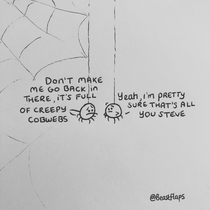 DON'T MAKE
ME GO BACK IN
THERE, IT'S FULL
OF CREEPY
COBWEBS
Yeah, i'm PRETTY
SURE THAT'S ALL
YOU STEVE
@Beadflaps